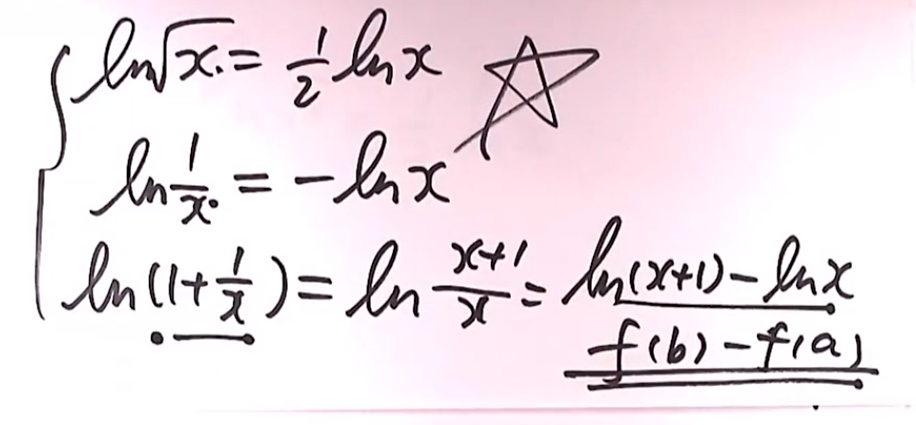 ln√x = 1/2 ln x
ln 1/x = -ln x
ln(1+1/x) = ln (x+1)/x = ln(x+1) - ln x
f(b) - f(a)